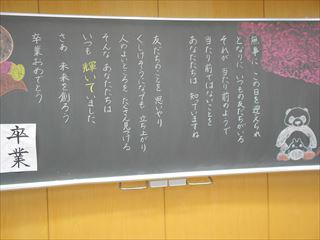 無事に この日を迎えられ
となりに いつもの友だちがいる
それが 当たり前のようで
当たり前ではないことを
あなたたちは 知っていますね
友だちのことを 思いやり
くじけそうになっても 立ち上がり
人のよいところを たくさん見つける
そんな あなたたちは
いつも 輝いていました
さあ 未来を創ろう
卒業おめでとう
卒業